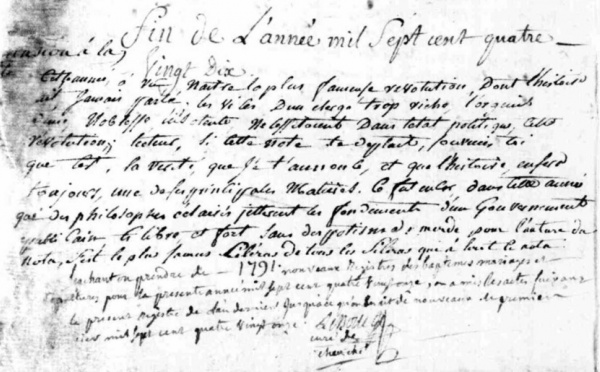 fin de L'année mil Sept cent quatre
Vingt Dix
cette année, a vu Naître la plus fameuse revolution, Dont l'histoire
ait Jamais Parlé; les vices D'un clergé trop riche l'orgueil
d'une Noblesse Necessitoient Dans l'etat politique, cette
revolution; lecteur, si cette note te deplait, souviens toi
que c'est la verité que je t'annonce, et que l'histoire en fera
toujours, une de ses principales Matieres. ce fut encor, dans cette année
que des philosophes eclairés jetterent les fondements d'un Gouvernement
republicain libre et fort sans despotisme; pour l'auteur du
Nota, c'est le plus fameux Libéras de tous les Libras que
prendre de 1791. nouveaux Registres des baptemes mariages et
sepultures pour la presente année mil sept cent quatre Vingt onze, on a mis les actes suivans
le present Registre de l'an dernier Jusqu'à ce qu'on en eut de nouveaux. le premier
vier mil Sept cent quatre Vingt onze
curé de